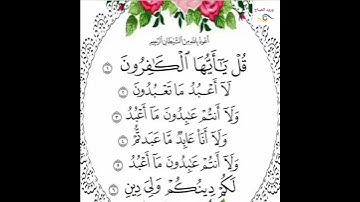 ورود الصباح
أعوذ بالله من الشيطان الرجيم
قُلْ يَٰٓأَيُّهَا ٱلْكَٰفِرُونَ ١
لَآ أَعْبُدُ مَا تَعْبُدُونَ ٢
وَلَآ أَنتُمْ عَٰبِدُونَ مَآ أَعْبُدُ ٣
وَلَآ أَنَا۠ عَابِدٌ مَّا عَبَدتُّمْ ٤
وَلَآ أَنتُمْ عَٰبِدُونَ مَآ أَعْبُدُ ٥
لَكُمْ دِينُكُمْ وَلِىَ دِينِ ٦